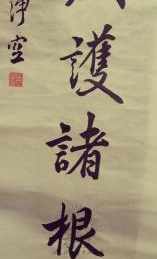 護諸根
淨空